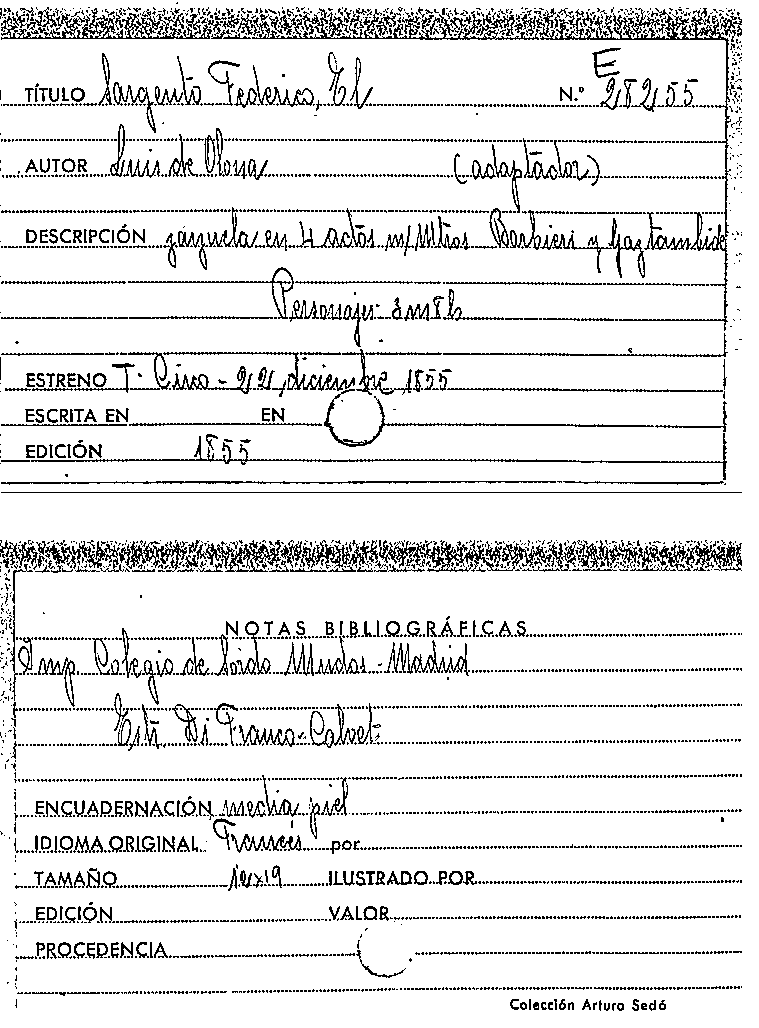 E
TÍTULO Sargento Federico, El N.º 28255
AUTOR Luis de Olona (adaptador)
DESCRIPCIÓN zarzuela en 4 actos m/Mtros Barbieri y Gaztambide
Personajes 3m 8h
ESTRENO T. Circo - 22, diciembre, 1855
ESCRITA EN EN
EDICIÓN 1855
NOTAS BIBLIOGRÁFICAS
Imp. Colegio de Sordo Mudos - Madrid
Estr. Di Franco-Calvet
ENCUADERNACIÓN media piel
IDIOMA ORIGINAL Francés por
TAMAÑO ILUSTRADO POR
EDICIÓN VALOR
PROCEDENCIA
Colección Arturo Sedó